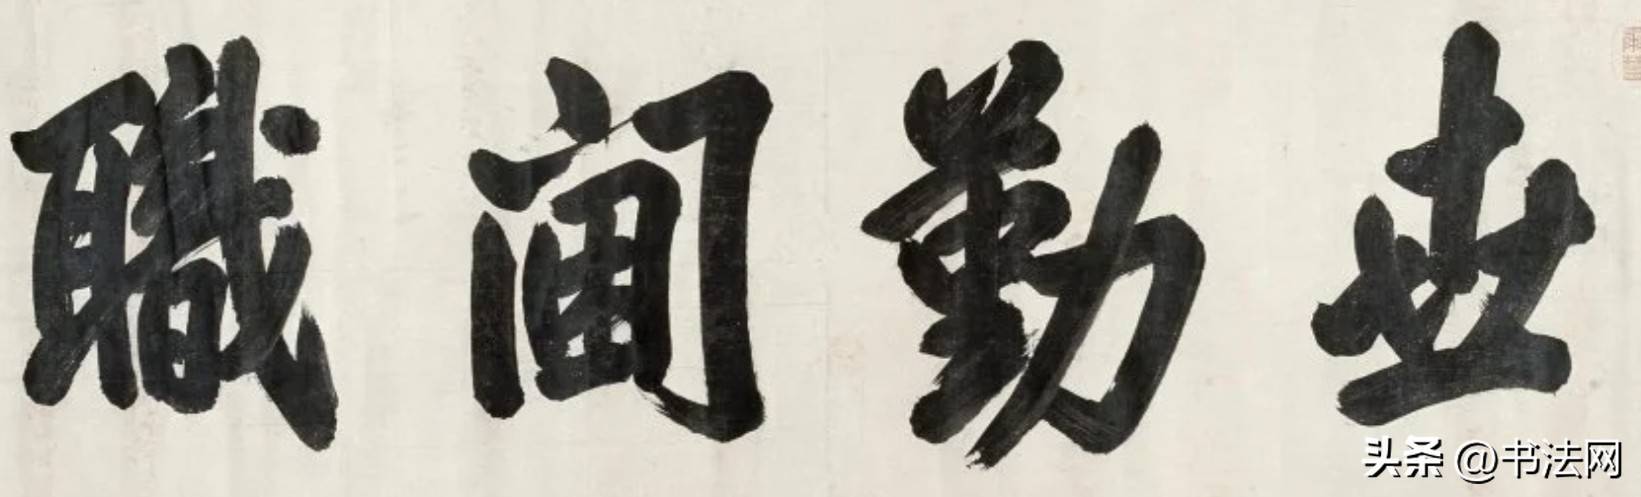 世勤閫職
头条 @书法网